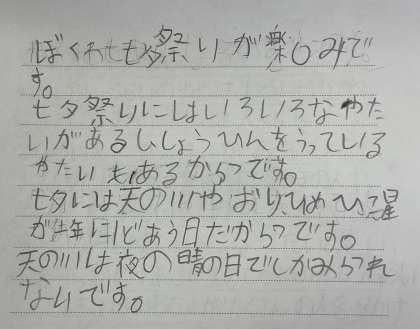 ぼくわ七夕祭りが楽しみで
す。
七夕祭りにはいろいろなやた
いがあるししょうひんをうっている
やたいもあるからです。
七夕には天の川やおりひめひこ星
が年に1どあう日だからです。
天の川は夜の晴の日でしかみられ
ないです。